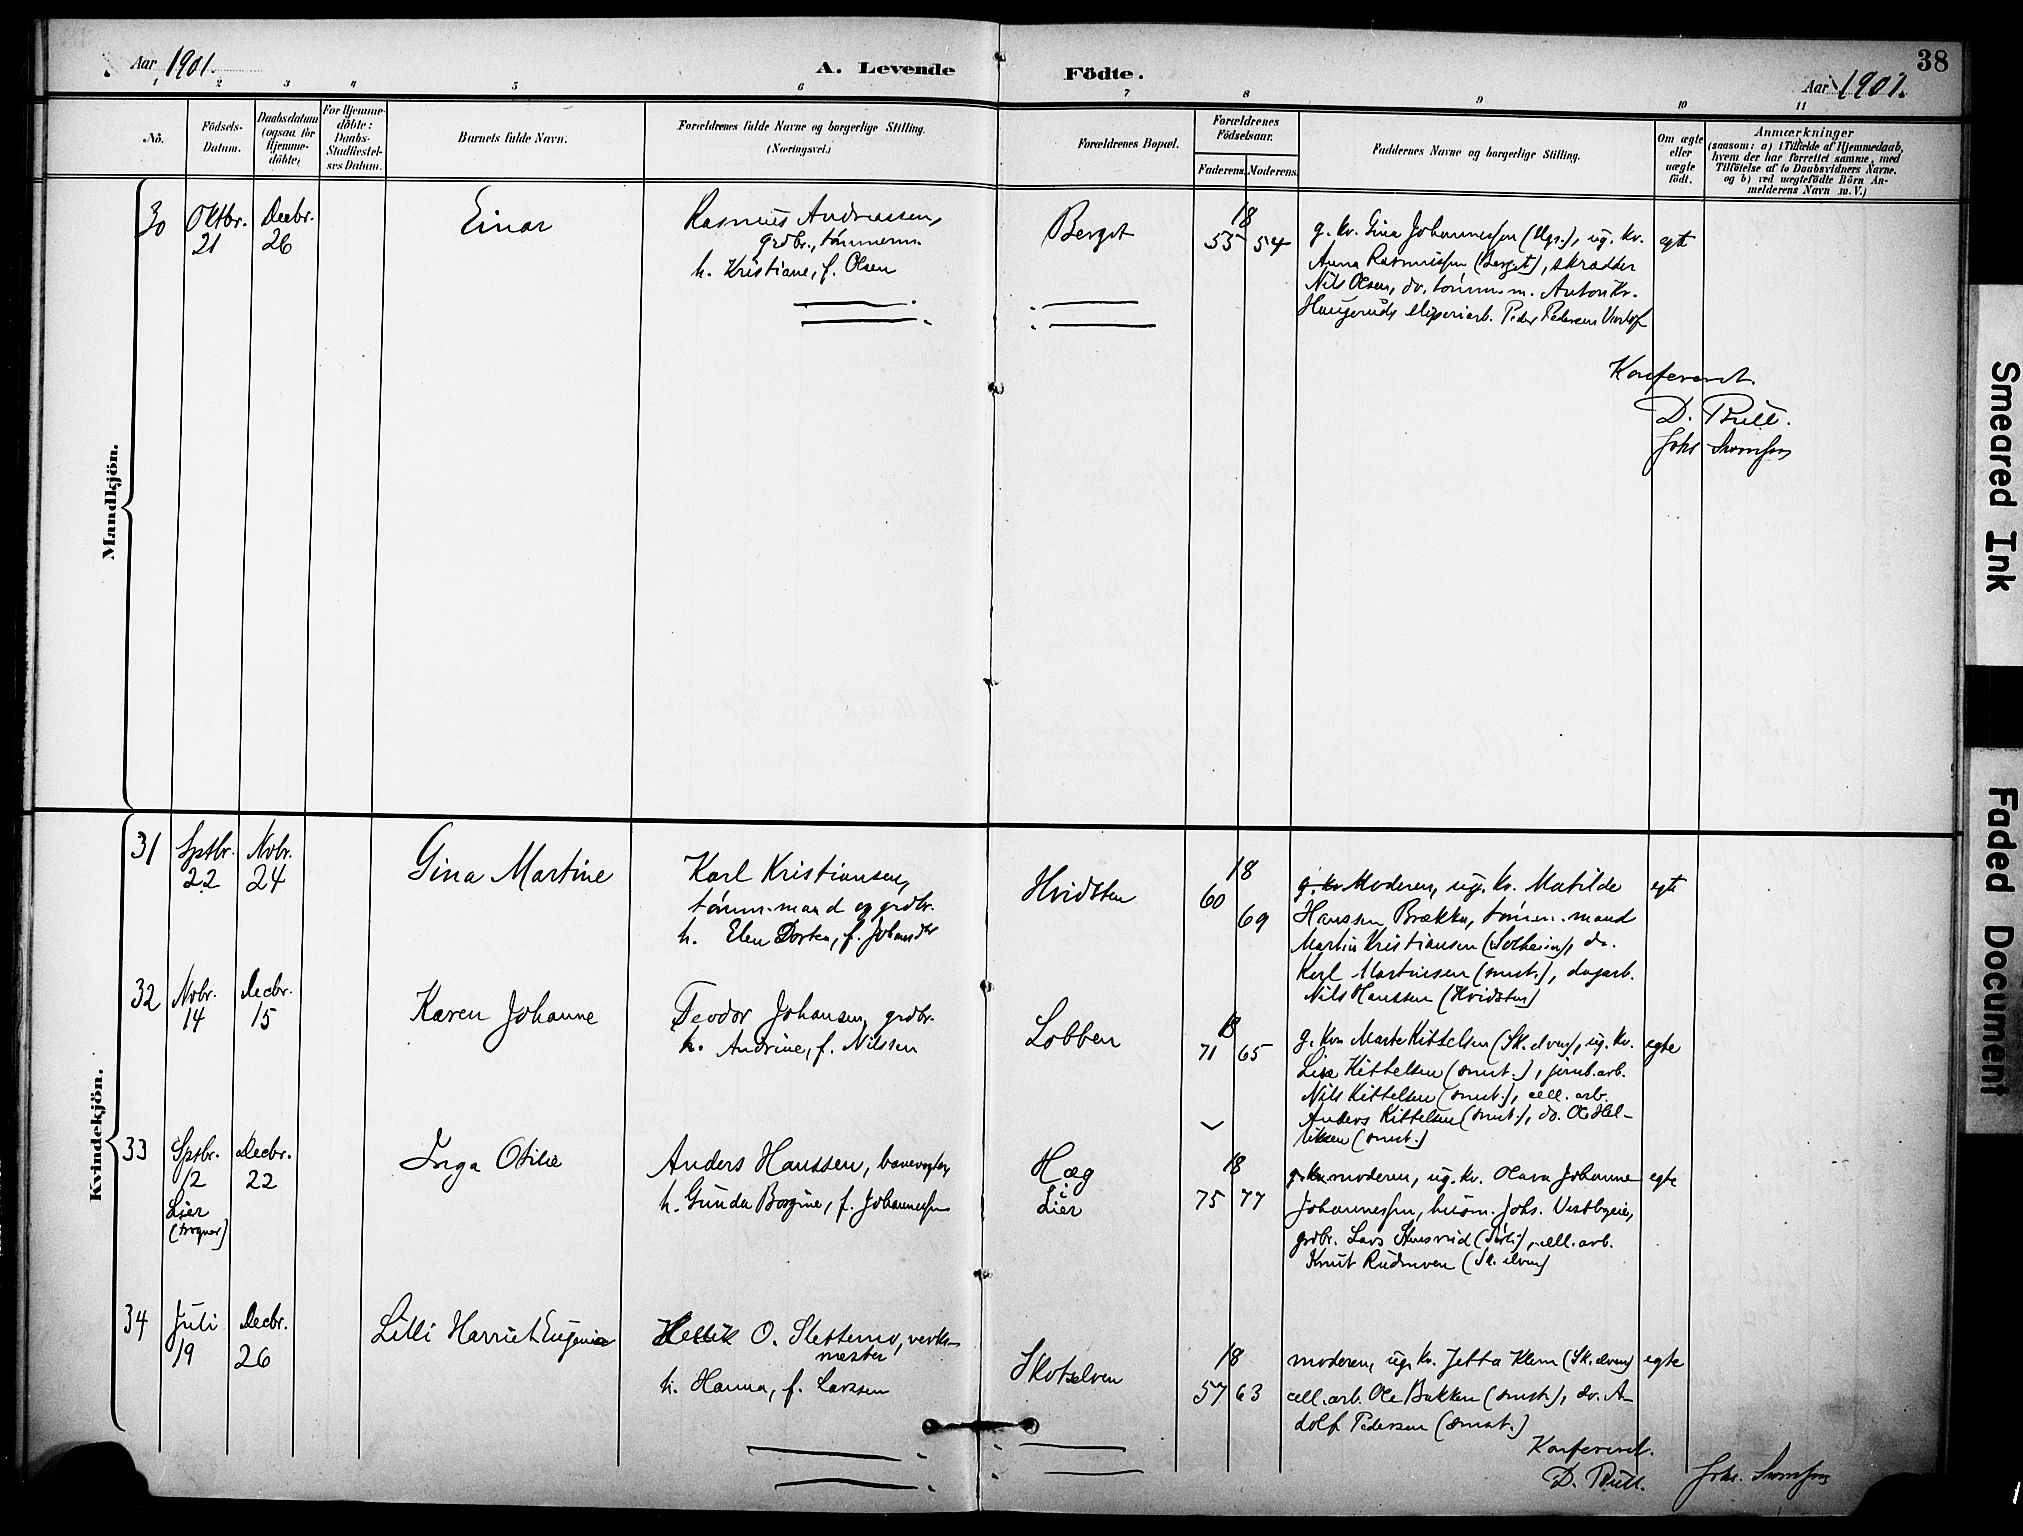 38
Aar 1901.
A. Levende Födte.
Aar 1901.
1 2 3 4 5 6 7 8 9 10 11
No.
Födsels-
Datum.
Daabsdatum
(ogsaa for
Hjemme-
döbte)
For Hjemme-
döbte:
Daabs-
Stadfæstel-
ses Datum.
Barnets fulde Navn.
Forældrenes fulde Navne og borgerlige Stilling.
(Næringsvei.)
Forældrenes Bopæl.
Forældrenes
Födselsaar.
Faderens. Moderens.
Faddernes Navne og borgerlige Stilling.
Om ægte
eller
uægte
födt.
Anmærkninger
(saasom: a) i Tilfælde af Hjemmedaab,
hvem der har forrettet samme, med
Tilföielse af to Daabsvidners Navne.
og b) ved uægtefödte Börn An-
melderens Navn m. V.)
Mandkjön.
30
Oktbr.
21
Decbr.
26
Einar
Rasmus Andreassen,
grdbr., tömmerm.
h. Kristiane, f. Olsen
Berget
18
55 54
g. kv. Gina Johannessen, ug. kv.
Anna Rasmussen (Berget), skrædder
Nils Olsen, do. tömm.m. Anton Kr.
Haugerud, Peder Pedersen
egte
Konfereret
D. Bull.
Johs
Kvindekjön.
31
Sptbr.
22
Novbr.
24
Gina Martine
Karl Kristiansen,
tömm.mand og grdbr.
h. Elen Dortea, f.
Hvidsten
18
60
69
g. kv. Moderen, ug. kv. Matilde
Hanssen Brække, tömm.mand
Martin Kristiansen (Solheim), do.
Karl Martinsen (smst.), dagarb.
Nils Hanssen (Hvidsten)
egte
32
Novbr.
14
Decbr.
15
Karen Johanne
Teodor Johansen, grdbr.
h. Andrine, f. Nilssen
Lobben
18
71 65
g. kv. Marte Kittelsen (Sk.elven), ug. kv.
Lise Kittelsen (smst.), jernb.arb.
Nils Kittelsen (smst.), cell. arb.
Anders Kittelsen (smst.), do. Ole Hel-
liksen (smst.)
egte
33
Sptbr.
12
Lier
Decbr.
22
Inga Otilie
Anders Hanssen, banevogter,
h. Gunda Borgine, f. Johannessen
Hæg
i
Lier
18
75 77
g. kv. moderen, ug. kv. Olava Johanne
Johannessen, husm. Johs. Vestbyeie,
grdbr. Lars, cell. arb.
Knut Rudmoen (Sk. elven)
egte
34
Juli
19
Decbr.
26
Lilli Harriet Eugenie
Hellik O. Slettemo, verks-
mester
h. Hanna, f. Larssen
Skotselven
18
57 63
moderen, ug. kv. Jetta Klem (Sk. elven)
cell. arb. Ole Bakken (smst.), do. A-
dolf Pedersen (smst.)
egte
Konfereret.
D. Bull.
Johs.
Smeared Ink
Faded Document